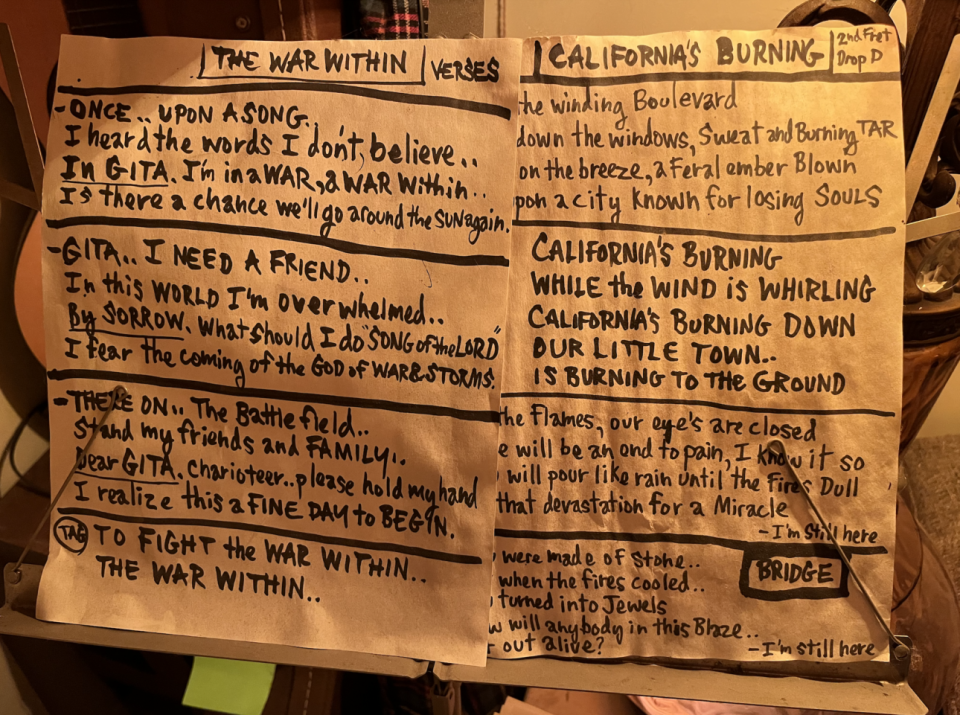 THE WAR WITHIN
VERSES
- ONCE.. UPON A SONG.
I heard the words I don't, believe..
In GITA. I'm in a WAR, a WAR Within..
Is there a chance we'll go around the SUN again.
- GITA.. I NEED A FRIEND..
In this WORLD I'm overwhelmed..
By SORROW. What should I do "SONG of the LORD"
I fear the coming of the GOD of WAR & STORMS.
- THERE ON.. The Battlefield..
Stand my friends and FAMILY..
Dear GITA. charioteer.. please hold my hand
I realize this a FINE DAY to BEGIN.
TAG TO FIGHT the WAR WITHIN..
THE WAR WITHIN..
CALIFORNIA'S BURNING
2nd Fret
Drop D
the winding Boulevard
down the windows, Sweat and Burning TAR
on the breeze, a Feral ember Blown
pon a city Known for losing SOULS
CALIFORNIA'S BURNING
WHILE the WIND is WHIRLING
CALIFORNIA'S BURNING DOWN
OUR LITTLE TOWN..
IS BURNING TO THE GROUND
the Flames, our eye's are closed
e will be an end to pain, I know it so
will pour like rain until the Fires Dull
that devastation for a Miracle
- I'm still here
were made of Stone..
BRIDGE
when the fires cooled..
turned into Jewels
w will anybody in this Blaze..
out alive?
- I'm still here